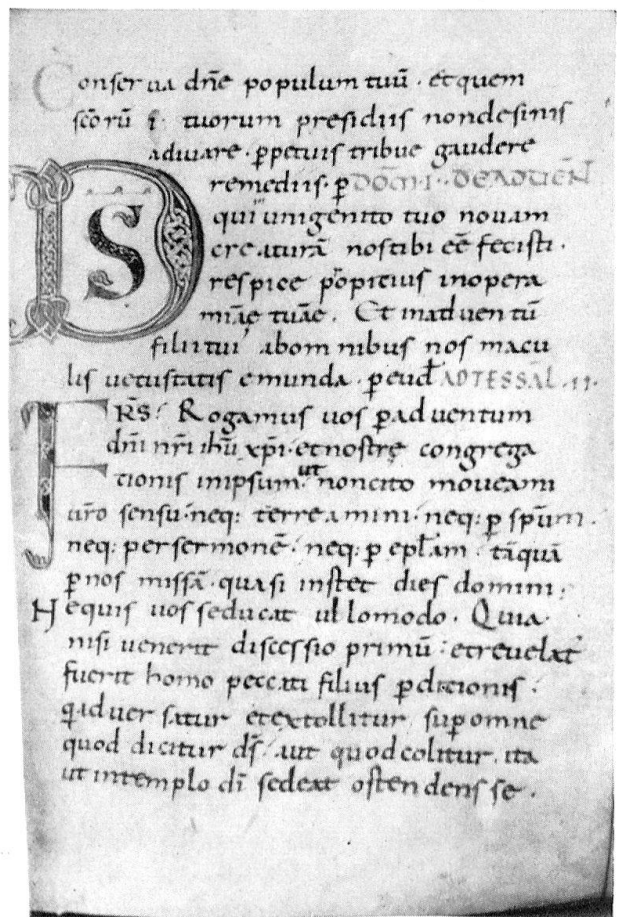 Conserva dn̄e populum tuū · et quem
sc̄orū ·ī· tuorum presidiis non desinis
adiuvare · p̱petuis tribue gaudere
remediis · p̱ DOM̄ I · DE ADUEN̄
DS qui unigenito tuo novam
creaturā nos tibi ēē fecisti ·
respice p̱opitius in opera
mīae tuae · Et in adventū
filii tui ab omnibus nos macu
lis vetustatis emunda · p̱ eund̄ AD TESSAL · II ·
FRS̄ · Rogamus vos p̱ adventum
dn̄i nr̄i ihū xp̄i · et nostrę congrega
tionis in ipsum · ut non cito moveami
vr̄o sensu · neq: terreamini · neq: p̱ sp̄um ·
neq: per sermonē · neq: p̱ epl̄am · tāquā
p̱ nos missā · quasi instet dies domini ;
Nequis vos seducat ullo modo · Quia
nisi venerit discessio primū · et revelat'
fuerit homo peccati filius p̱ditionis ·
q̄ adversatur et extollitur sup̱ omne
quod dicitur ds̄ · aut quod colitur · ita
ut in templo dī sedeat ostendens se ·